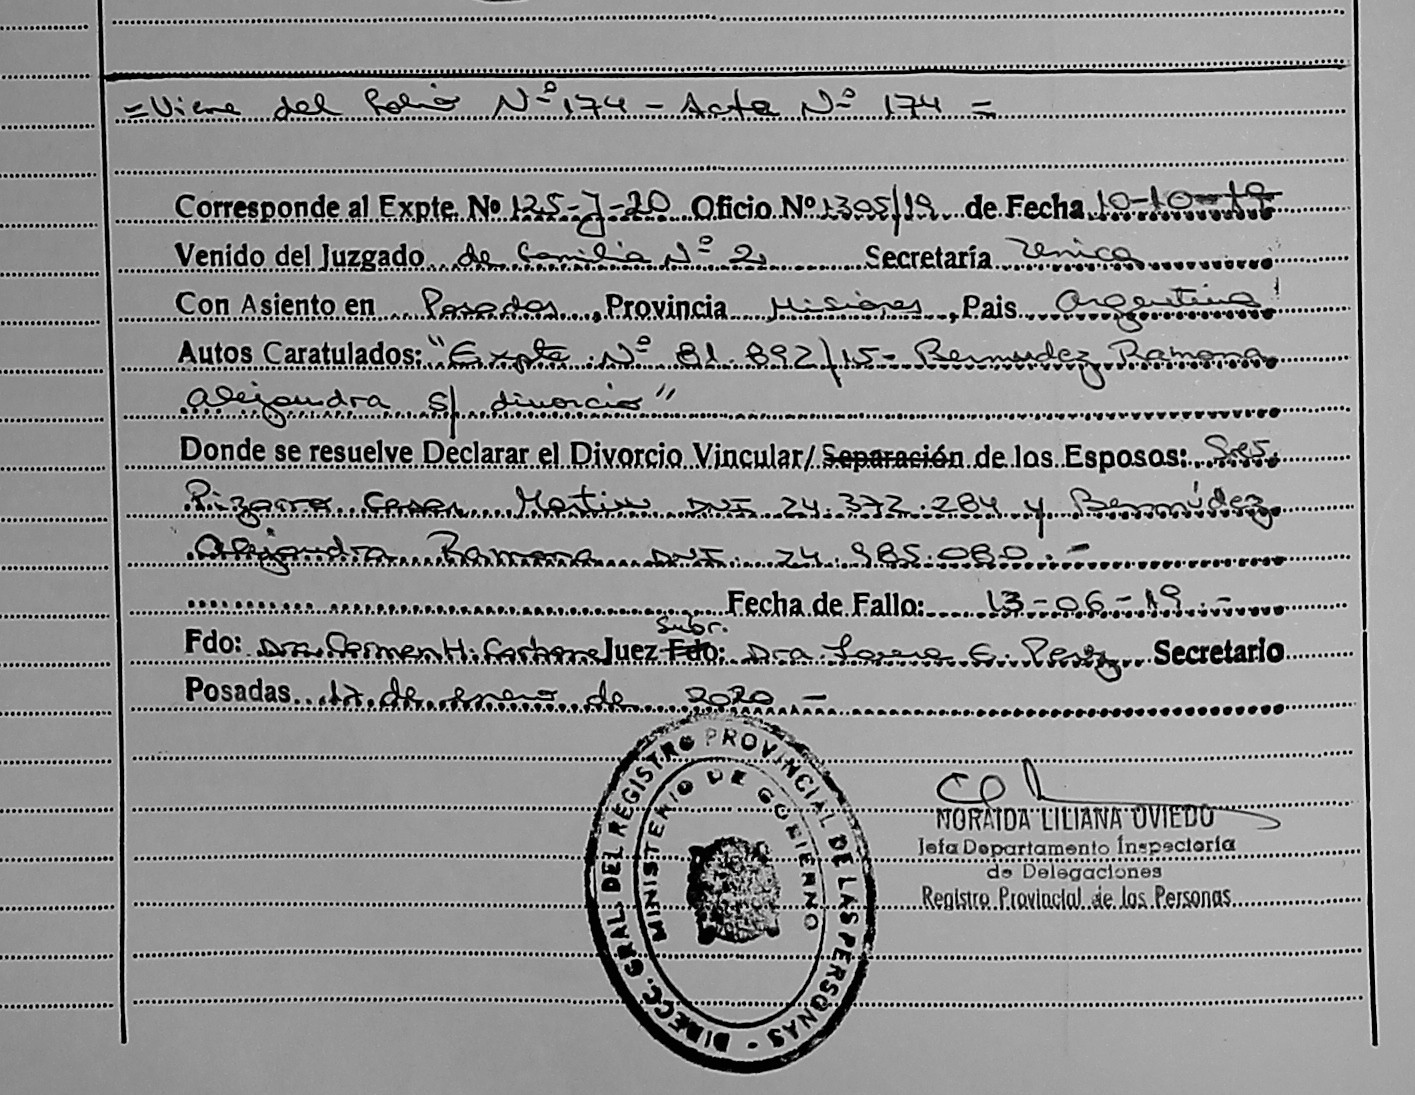 =Viene del Folio Nº 174 - Acta Nº 174 =
Corresponde al Expte. Nº 125-J-20 Oficio Nº 1305/19 de Fecha 10-10-19
Venido del Juzgado de Familia Nº 2 Secretaría Unica
Con Asiento en Posadas, Provincia Misiones, Pais Argentina
Autos Caratulados: "Expte Nº 81.892/15- Bermudez Ramona
Alejandra s/ divorcio"
Donde se resuelve Declarar el Divorcio Vincular/ Separación de los Esposos: Sres.
Pizarro Cesar Martin DNI 24.372.284 y Bermúdez
Alejandra Ramona DNI. 24.985.080.-
Fecha de Fallo: 13-06-19.-
Subr.
Fdo: Dra. Carmen H. Carbone Juez Fdo: Dra Lorena C. Perez Secretario
Posadas 17 de enero de 2020 -
DIRECC. GRAL. DEL REGISTRO PROVINCIAL DE LAS PERSONAS -
MINISTERIO DE GOBIERNO
NORAIDA LILIANA OVIEDO
Jefa Departamento Inspectoría
de Delegaciones
Registro Provincial de las Personas